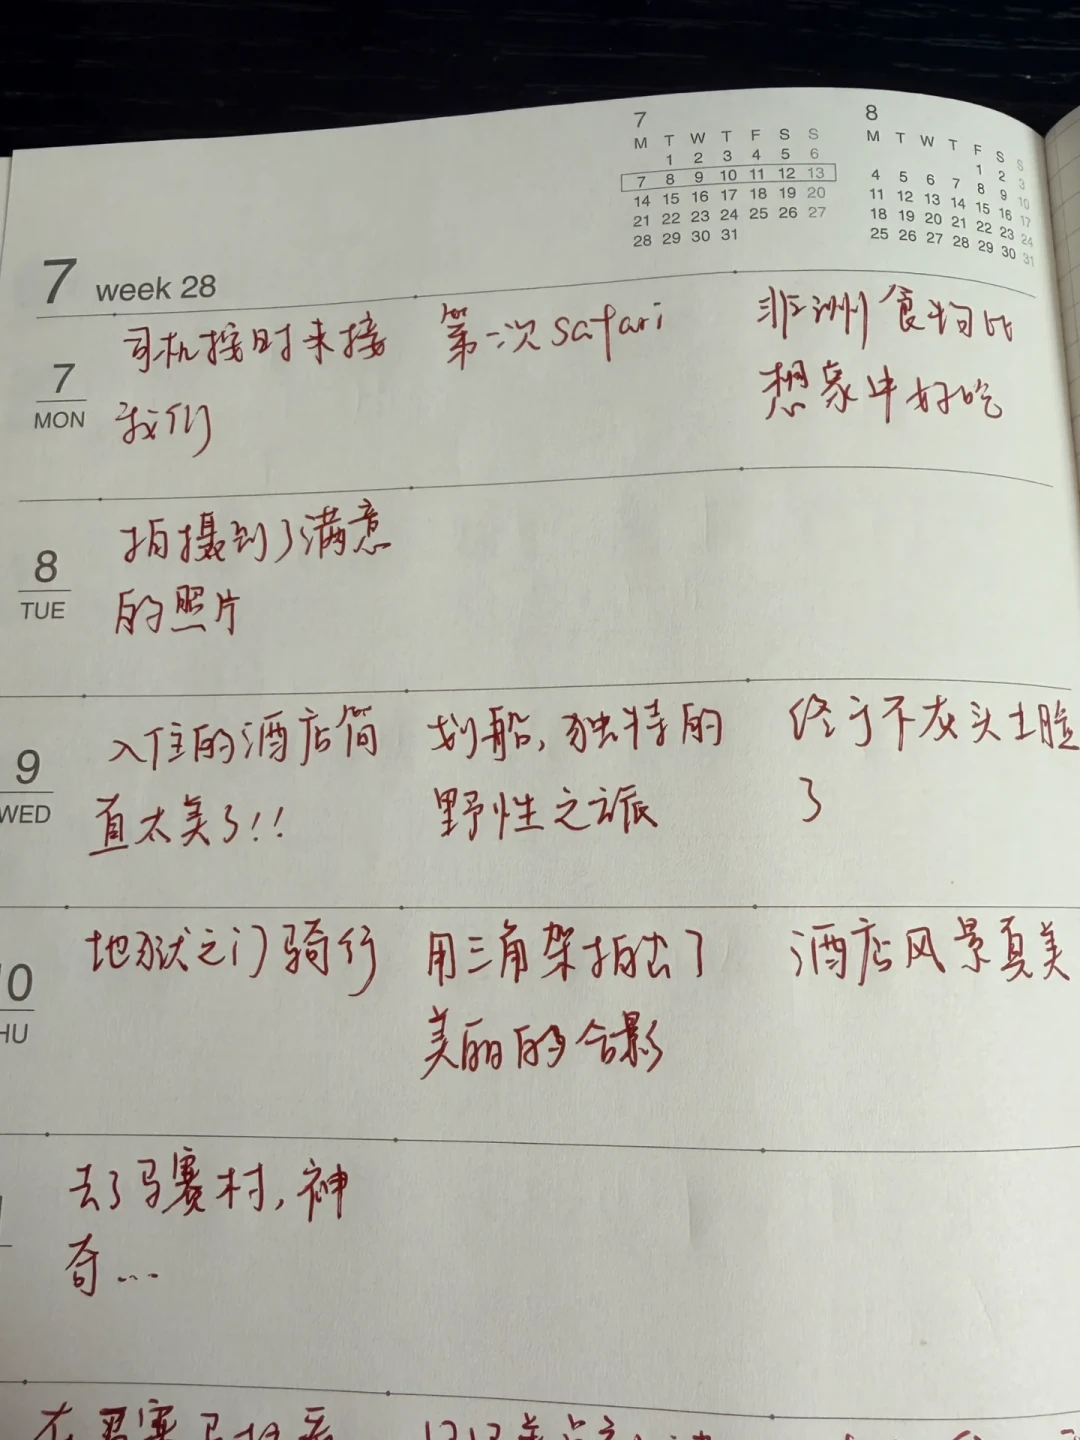 7
M T W T F S S
1 2 3 4 5 6
7 8 9 10 11 12 13
14 15 16 17 18 19 20
21 22 23 24 25 26 27
28 29 30 31
8
M T W T F S S
1 2 3
4 5 6 7 8 9 10
11 12 13 14 15 16 17
18 19 20 21 22 23 24
25 26 27 28 29 30 31
7 week 28
7
MON
司机按时来接
我们
第一次safari
非洲食物比
想象中好吃
8
TUE
拍摄到了满意
的照片
9
WED
入住的酒店简
直太美了!!
划船,独特的
野性之旅
终于不灰头土脸
了
0
HU
地狱之门骑行
用三角架拍出了
美丽的合影
酒店风景真美
去了马赛村,神
奇...